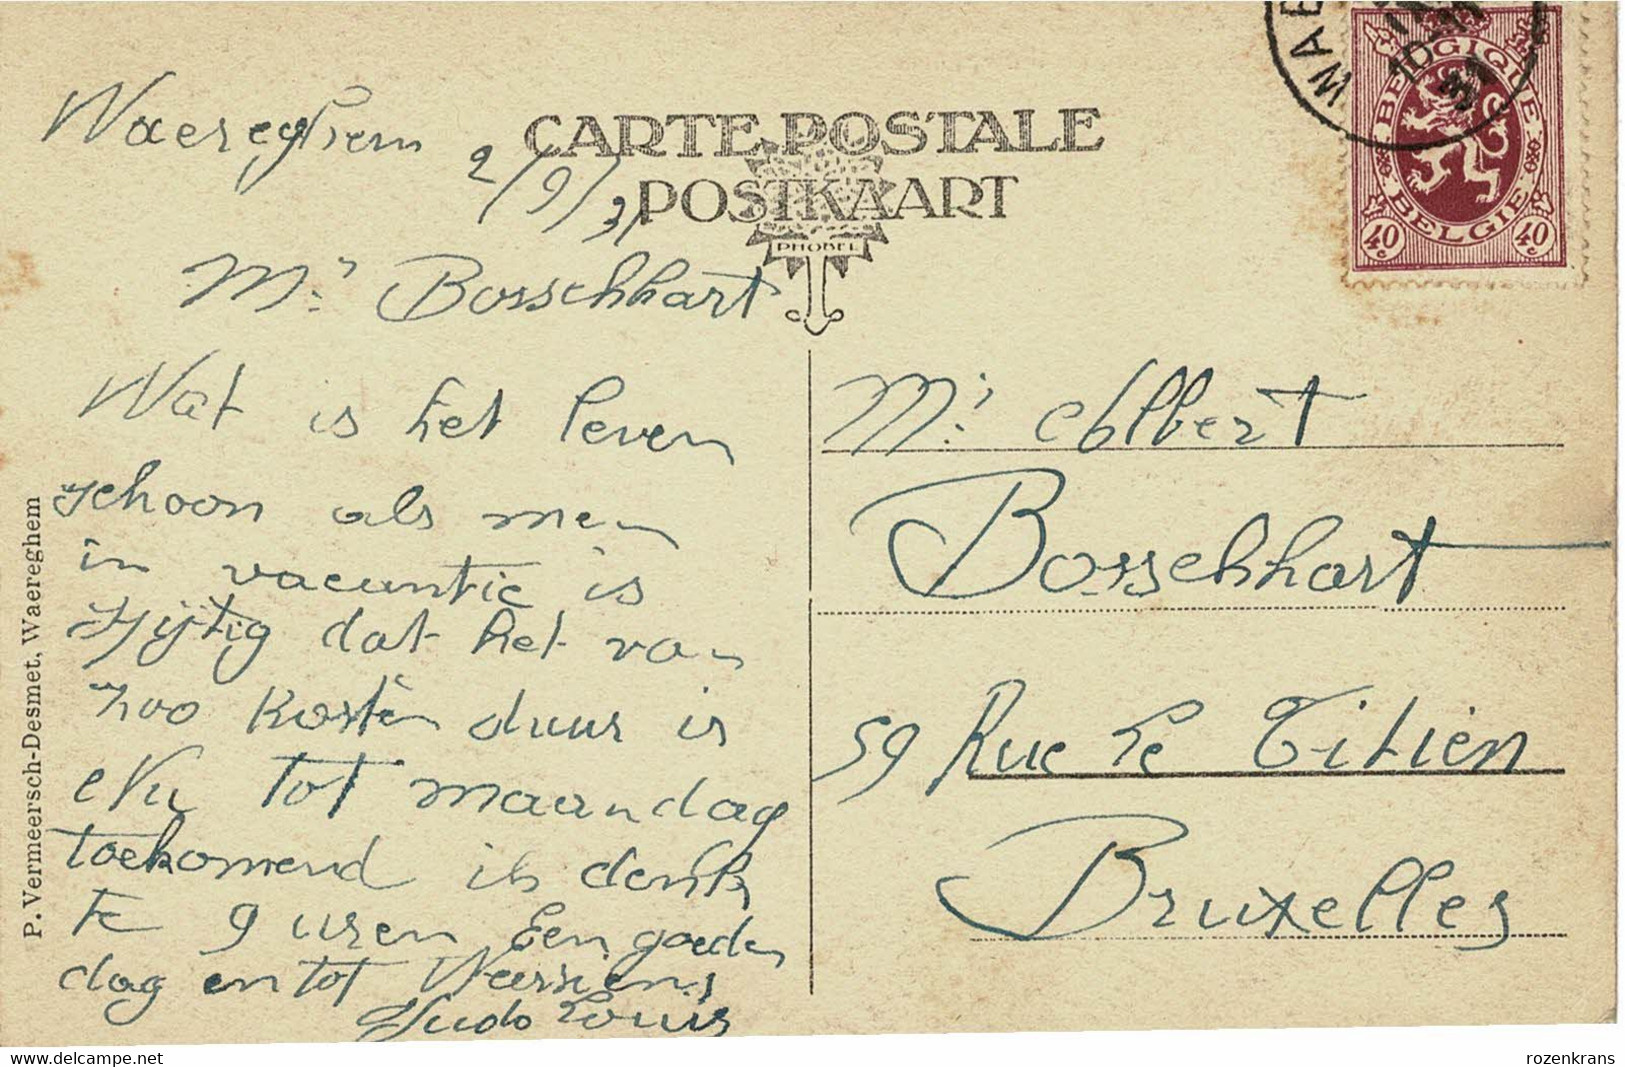 Waereghem 2/9/31
CARTE POSTALE
POSTKAART
PHOBEL
WAE
10
31
BELGIQUE
BELGIE
40c 40c
Mr Bosschhart
Wat is het leven
schoon als men
in vacantie is
spijtig dat het van
zoo korten duur is
Nu tot maandag
toekomend ik denk
te 9 uren Een goeden
dag en tot Weerziens
Louis
Mr Albert
Bosschhart
59 Rue le Titien
Bruxelles
P. Vermeersch-Desmet, Waereghem
delcampe.net
rozenkrans